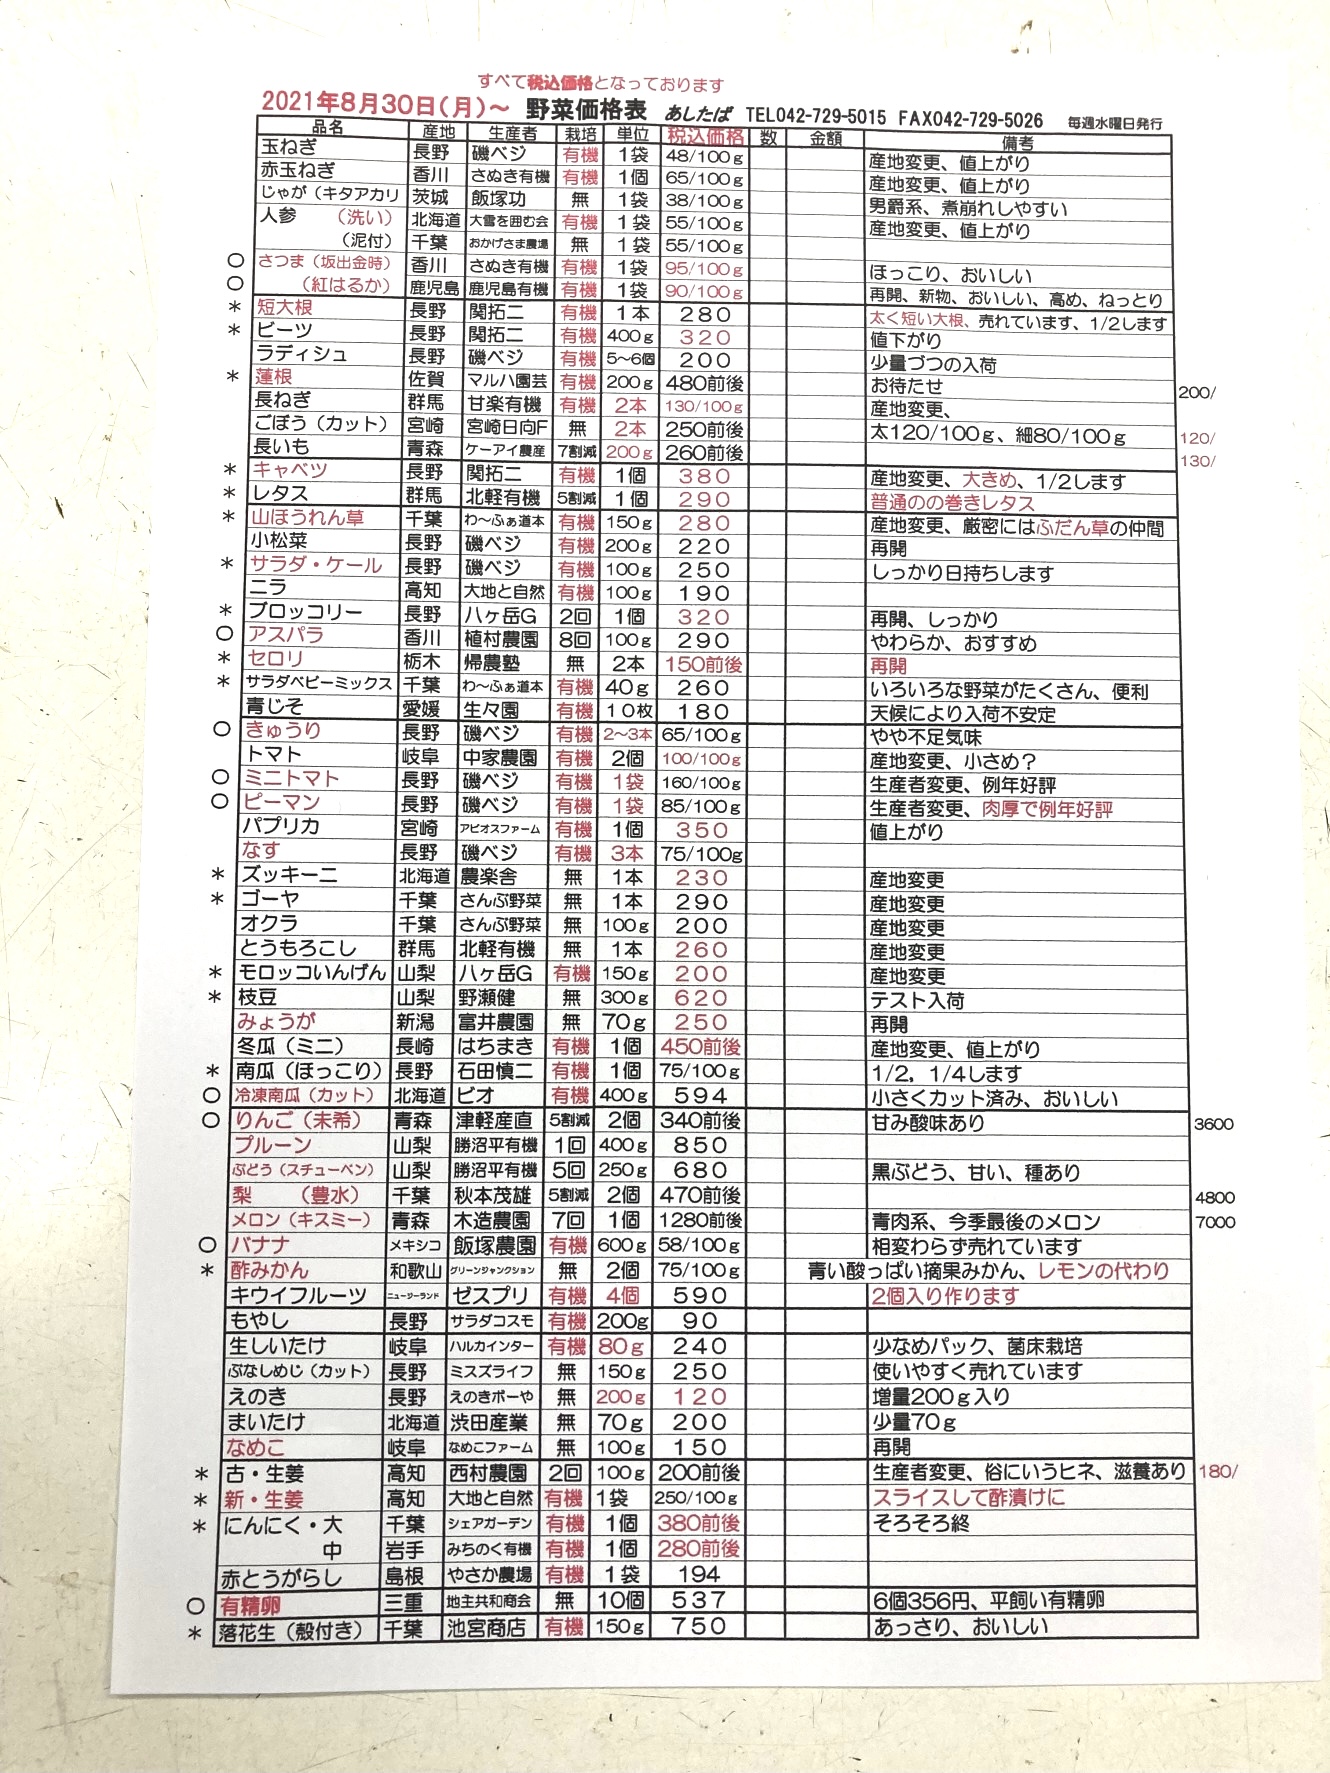 すべて税込価格となっております
2021年8月30日(月)～ 野菜価格表 あしたば TEL042-729-5015 FAX042-729-5026 毎週水曜日発行
品名 産地 生産者 栽培 単位 税込価格 数 金額 備考
玉ねぎ 長野 磯ベジ 有機 1袋 48/100g 産地変更、値上がり
赤玉ねぎ 香川 さぬき有機 有機 1個 65/100g 産地変更、値上がり
じゃが（キタアカリ 茨城 飯塚功 無 1袋 38/100g 男爵系、煮崩れしやすい
人参 （洗い） 北海道 大雪を囲む会 有機 1袋 55/100g 産地変更、値上がり
（泥付） 千葉 おかげさま農場 無 1袋 55/100g
○ さつま（坂出金時） 香川 さぬき有機 有機 1袋 95/100g ほっこり、おいしい
○ （紅はるか） 鹿児島 鹿児島有機 有機 1袋 90/100g 再開、新物、おいしい、高め、ねっとり
* 短大根 長野 関拓二 有機 1本 280 太く短い大根、売れています、1/2します
* ビーツ 長野 関拓二 有機 400g 320 値下がり
ラディシュ 長野 磯ベジ 有機 5～6個 200 少量づつの入荷
* 蓮根 佐賀 マルハ園芸 有機 200g 480前後 お待たせ 200/
長ねぎ 群馬 甘楽有機 有機 2本 130/100g 産地変更、
ごぼう（カット） 宮崎 宮崎日向F 無 2本 250前後 太120/100g、細80/100g 120/
長いも 青森 ケーアイ農産 7割減 200g 260前後 130/
* キャベツ 長野 関拓二 有機 1個 380 産地変更、大きめ、1/2します
* レタス 群馬 北軽有機 5割減 1個 290 普通のの巻きレタス
* 山ほうれん草 千葉 わ～ふぁ道本 有機 150g 280 産地変更、厳密にはふだん草の仲間
小松菜 長野 磯ベジ 有機 200g 220 再開
* サラダ・ケール 長野 磯ベジ 有機 100g 250 しっかり日持ちします
ニラ 高知 大地と自然 有機 100g 190
* ブロッコリー 長野 八ヶ岳G 2回 1個 320 再開、しっかり
○ アスパラ 香川 植村農園 8回 100g 290 やわらか、おすすめ
* セロリ 栃木 帰農塾 無 2本 150前後 再開
* サラダベビーミックス 千葉 わ～ふぁ道本 有機 40g 260 いろいろな野菜がたくさん、便利
青じそ 愛媛 生々園 有機 10枚 180 天候により入荷不安定
○ きゅうり 長野 磯ベジ 有機 2～3本 65/100g やや不足気味
トマト 岐阜 中家農園 有機 2個 100/100g 産地変更、小さめ？
○ ミニトマト 長野 磯ベジ 有機 1袋 160/100g 生産者変更、例年好評
○ ピーマン 長野 磯ベジ 有機 1袋 85/100g 生産者変更、肉厚で例年好評
パプリカ 宮崎 アビオスファーム 有機 1個 350 値上がり
なす 長野 磯ベジ 有機 3本 75/100g
* ズッキーニ 北海道 農楽舎 無 1本 230 産地変更
* ゴーヤ 千葉 さんぶ野菜 無 1本 290 産地変更
オクラ 千葉 さんぶ野菜 無 100g 200 産地変更
とうもろこし 群馬 北軽有機 無 1本 260 産地変更
* モロッコいんげん 山梨 八ヶ岳G 有機 150g 200 産地変更
* 枝豆 山梨 野瀬健 無 300g 620 テスト入荷
みょうが 新潟 富井農園 無 70g 250 再開
冬瓜（ミニ） 長崎 はちまき 有機 1個 450前後 産地変更、値上がり
* 南瓜（ほっこり） 長野 石田慎二 有機 1個 75/100g 1/2，1/4します
○ 冷凍南瓜（カット） 北海道 ビオ 有機 400g 594 小さくカット済み、おいしい
○ りんご（未希） 青森 津軽産直 5割減 2個 340前後 甘み酸味あり 3600
プルーン 山梨 勝沼平有機 1回 400g 850
ぶどう（スチューベン） 山梨 勝沼平有機 5回 250g 680 黒ぶどう、甘い、種あり
梨 （豊水） 千葉 秋本茂雄 5割減 2個 470前後 4800
メロン（キスミー） 青森 木造農園 7回 1個 1280前後 青肉系、今季最後のメロン 7000
○ バナナ メキシコ 飯塚農園 有機 600g 58/100g 相変わらず売れています
* 酢みかん 和歌山 グリーンジャンクション 無 2個 75/100g 青い酸っぱい摘果みかん、レモンの代わり
キウイフルーツ ニュージーランド ゼスプリ 有機 4個 590 2個入り作ります
もやし 長野 サラダコスモ 有機 200g 90
生しいたけ 岐阜 ハルカインター 有機 80g 240 少なめパック、菌床栽培
ぶなしめじ（カット） 長野 ミスズライフ 無 150g 250 使いやすく売れています
えのき 長野 えのきボーや 無 200g 120 増量200g入り
まいたけ 北海道 渋田産業 無 70g 200 少量70g
なめこ 岐阜 なめこファーム 無 100g 150 再開
* 古・生姜 高知 西村農園 2回 100g 200前後 生産者変更、俗にいうヒネ、滋養あり 180/
* 新・生姜 高知 大地と自然 有機 1袋 250/100g スライスして酢漬けに
* にんにく・大 千葉 シェアガーデン 有機 1個 380前後 そろそろ終
中 岩手 みちのく有機 有機 1個 280前後
赤とうがらし 島根 やさか農場 有機 1袋 194
○ 有精卵 三重 地主共和商会 無 10個 537 6個356円、平飼い有精卵
* 落花生（殻付き） 千葉 池宮商店 有機 150g 750 あっさり、おいしい